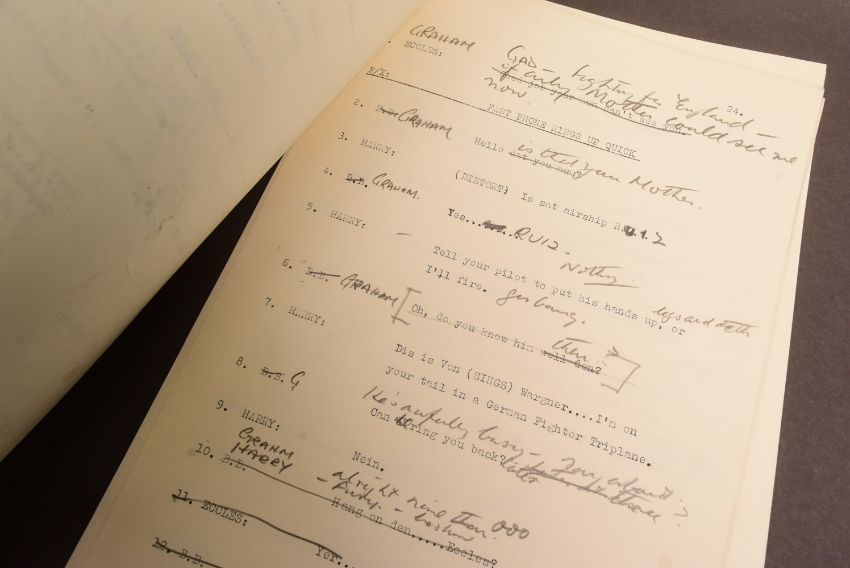 GRAHAM
ECCLES: GAD Fighting for England -
if only Mother could see me
now.
24.
F/X: FAST PHONE RINGS UP QUICK
2. B.B. GRAHAM Hello is that you Mother.
3. HARRY: (DISTORT) Is zat airship R.U.1.2
4. B.B. GRAHAM. Yes........ RU12.
5. HARRY: - Tell your pilot to put his hands up, or
I'll fire.
6. B.B. GRAHAM [Oh, do you know him well den? then?]
7. HARRY: Dis is Von (SINGS) Wargner....I'm on
your tail in a German Fighter Triplane.
8. B.B. G He's awfully busy -
Can I ring you back? later
9. HARRY: Nein.
10. B.B. GRAHM. HARRY alright nine then. 000
Hang on den.....Eccles?
11. ECCLES: Yer...
12. B.B.